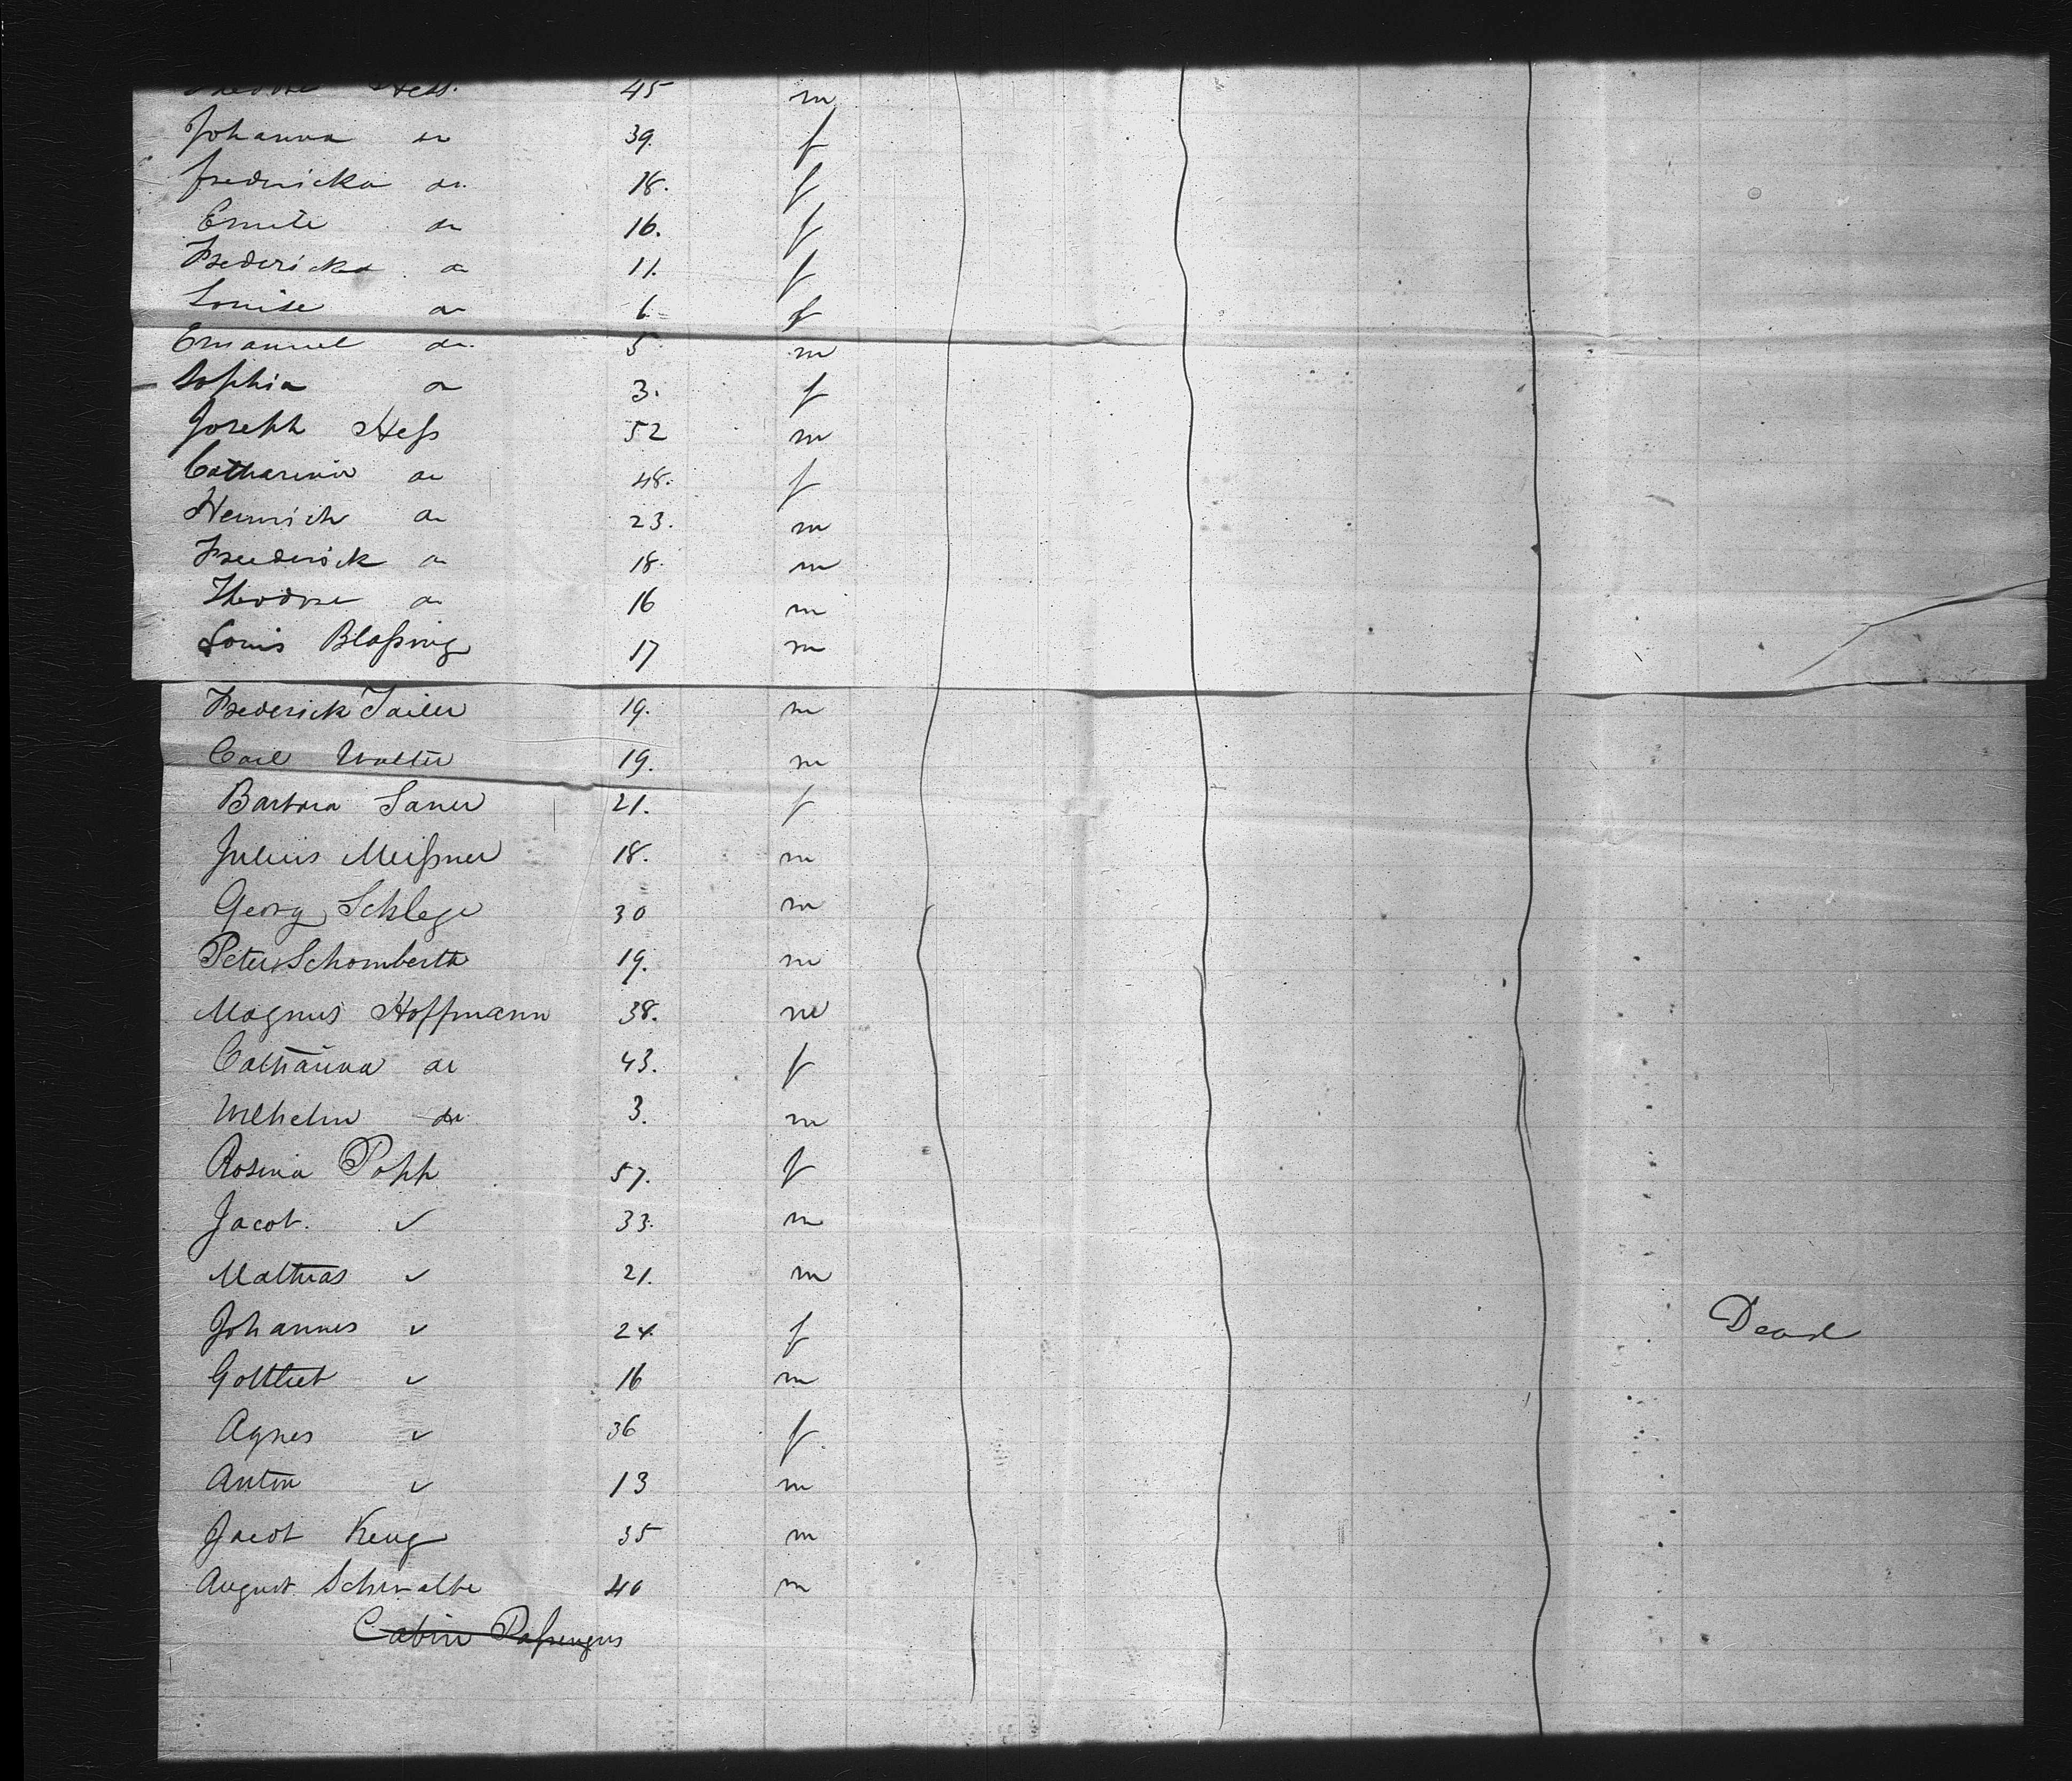 Theodor Hess. 45 m
Johanna do 39. f
Fredericka do. 18. f
Emile do 16. f
Fredericka do 11. f
Louise do 6. f
Emanuel do. 5 m
Sophia do 3. f
Joseph Heſs 52 m
Catharina do 48. f
Heinrich do 23. m
Frederick do 18. m
Theodor do 16 m
Louis Blaſsing 17 m
Frederick Sailer 19. m
Carl Walter 19. m
Barbara Saner 21. f
Julius Meiſsner 18. m
Georg Schlege 30 m
Peter Schomberth 19. m
Magnus Hoffmann 38. m
Catharina do 43. f
Wilhelm do 3. m
Rosina Popp 57. f
Jacob. ✓ 33. m
Mathias ✓ 21. m
Johannes ✓ 24. f Dead
Gottlieb ✓ 16 m
Agnes ✓ 36 f.
Anton ✓ 13 m
Jacob Keug 35 m
August Schwalbe 40 m
Cabin Paſsengers